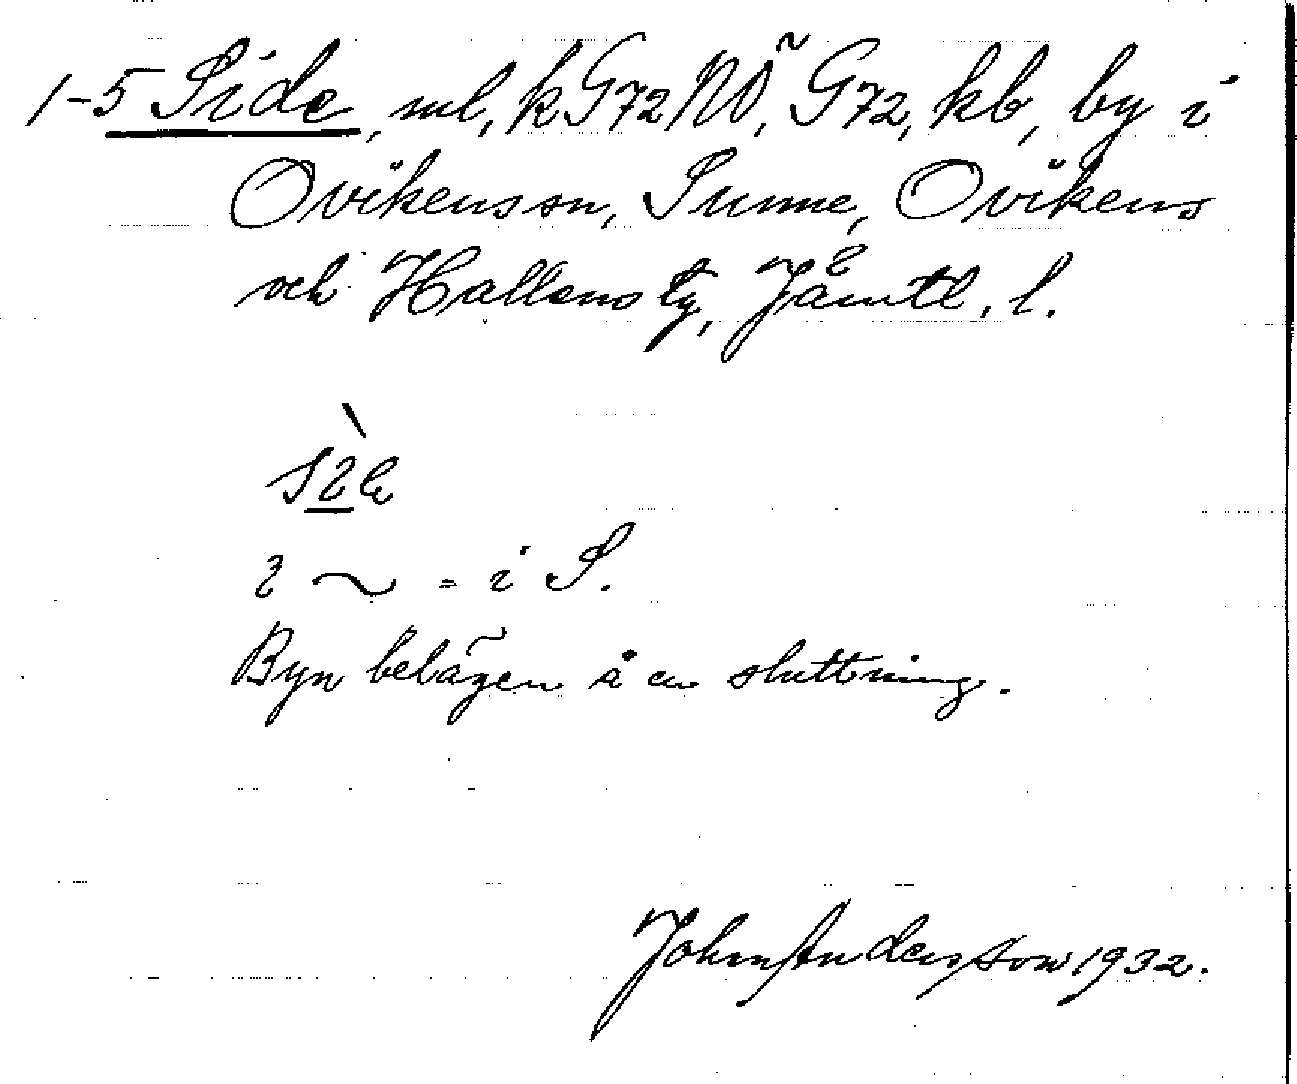 1-5 Side, ml, k G72 NÖ, G72, kb, by i
Ovikens sn, Sunne, Ovikens
och Hallens tg, Jämtl. l.
i ~ = i S.
Byn belägen å en sluttning.
John Andersson 1932.